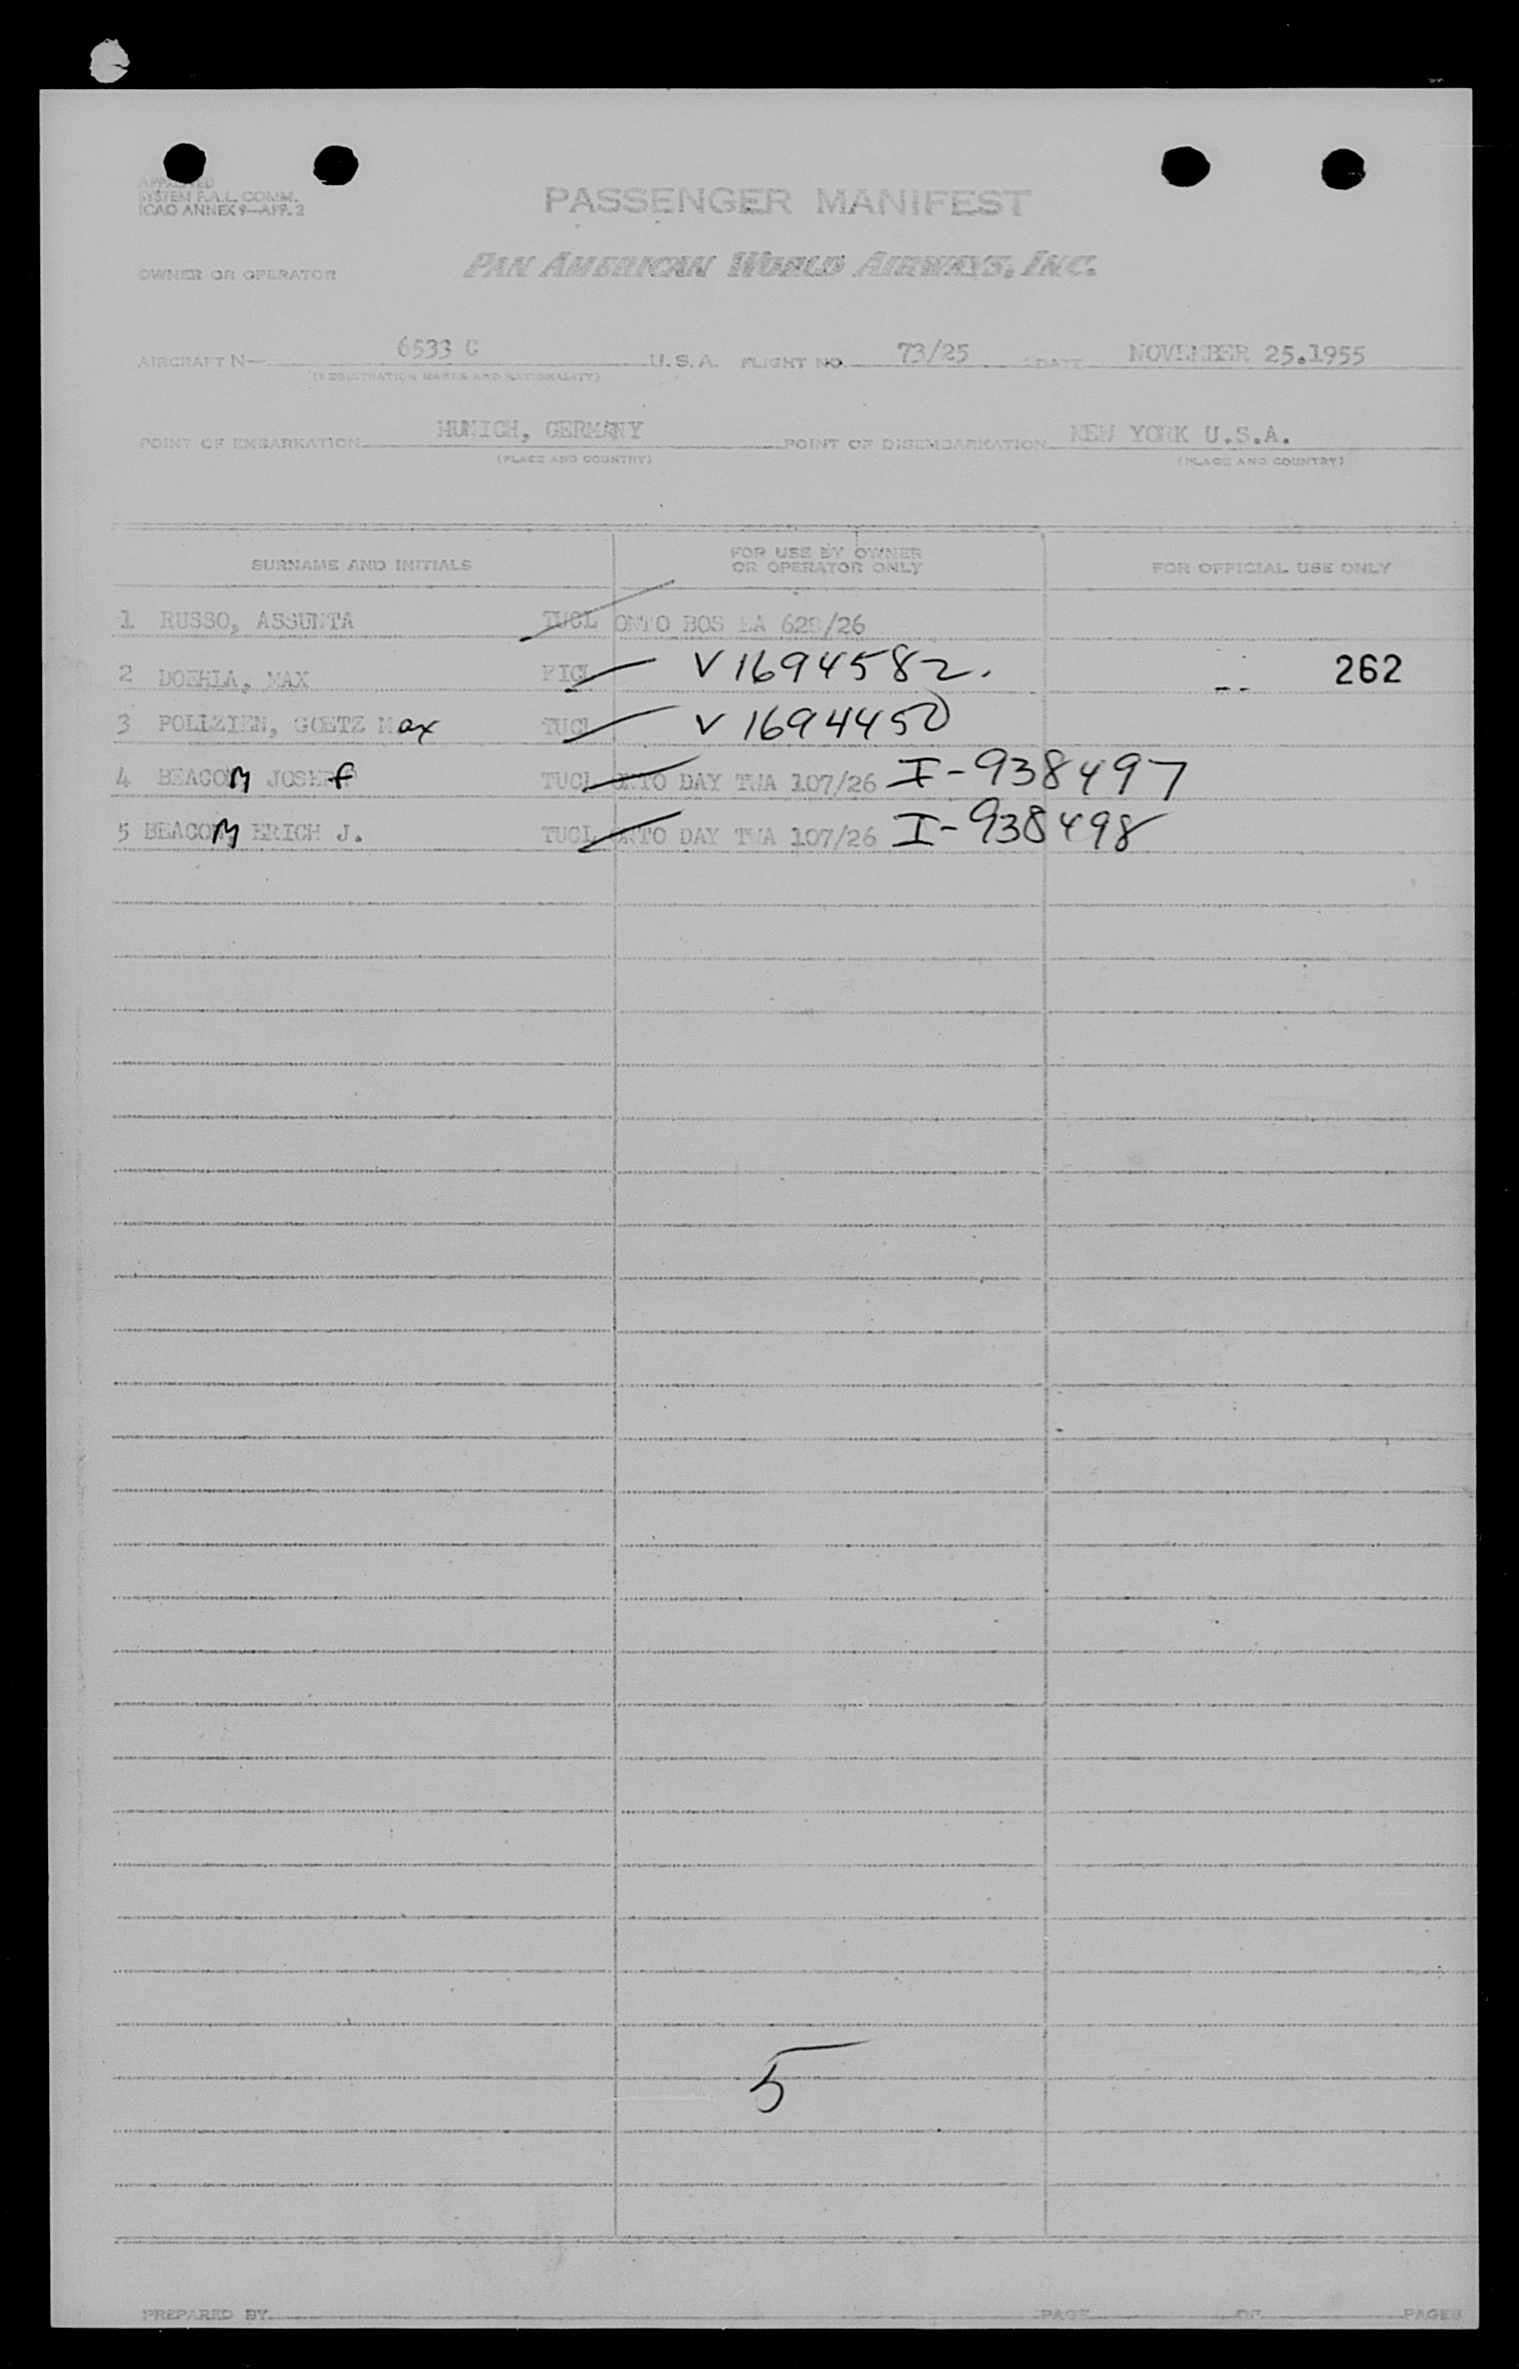 APPROVED
SYSTEM F.A.L. COMM.
ICAO ANNEX 9—APP. 2
PASSENGER MANIFEST
OWNER OR OPERATOR PAN AMERICAN WORLD AIRWAYS, INC.
AIRCRAFT N— 6533 C U.S.A. FLIGHT NO. 73/25 DATE NOVEMBER 25.1955
(REGISTRATION MARKS AND NATIONALITY)
POINT OF EMBARKATION MUNICH, GERMANY POINT OF DISEMBARKATION NEW YORK U.S.A.
(PLACE AND COUNTRY) (PLACE AND COUNTRY)
SURNAME AND INITIALS FOR USE BY OWNER OR OPERATOR ONLY FOR OFFICIAL USE ONLY
1 RUSSO, ASSUNTA TUCL ONTO BOS EA 628/26
2 DOEHLA, MAX FICL V1694582. 262
3 POLLZIEN, GOETZ Max TUCL V1694450
4 BEACOM JOSEF TUCL ONTO DAY TWA 107/26 I-938497
5 BEACOM, ERICH J. TUCL ONTO DAY TWA 107/26 I-938498
5
PREPARED BY PAGE OF PAGES